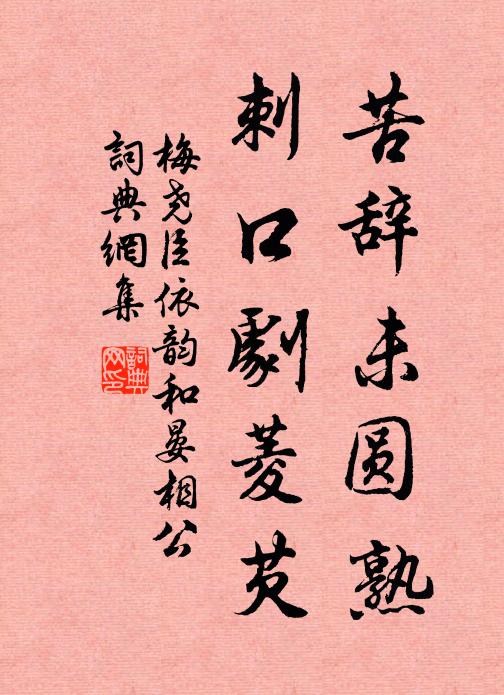 苦辞未圆熟
刺口劇菱芡
梅尧臣依韵和晏相公
詞典網集
詞典網印